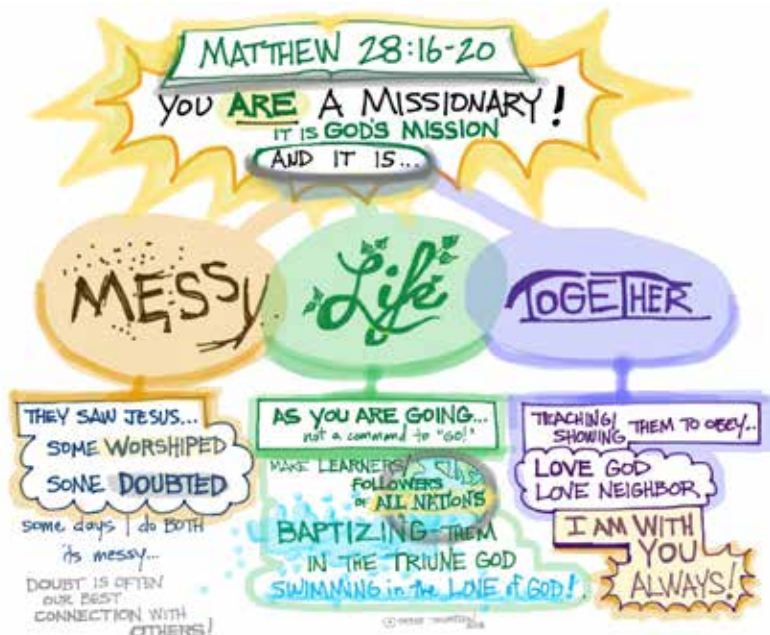 MATTHEW 28:16-20
YOU ARE A MISSIONARY!
IT IS GOD'S MISSION
AND IT IS...
MESSY
Life
TOGETHER
THEY SAW JESUS...
SOME WORSHIPED
SOME DOUBTED
some days I do BOTH
its messy...
DOUBT IS OFTEN
OUR BEST
CONNECTION WITH
OTHERS!
AS YOU ARE GOING...
not a command to "GO!"
MAKE LEARNERS/
FOLLOWERS
OF ALL NATIONS
BAPTIZING THEM
IN THE TRIUNE GOD
SWIMMING in the LOVE of GOD!
TEACHING/
SHOWING THEM TO OBEY..
LOVE GOD
LOVE NEIGHBOR
I AM WITH
YOU
ALWAYS!